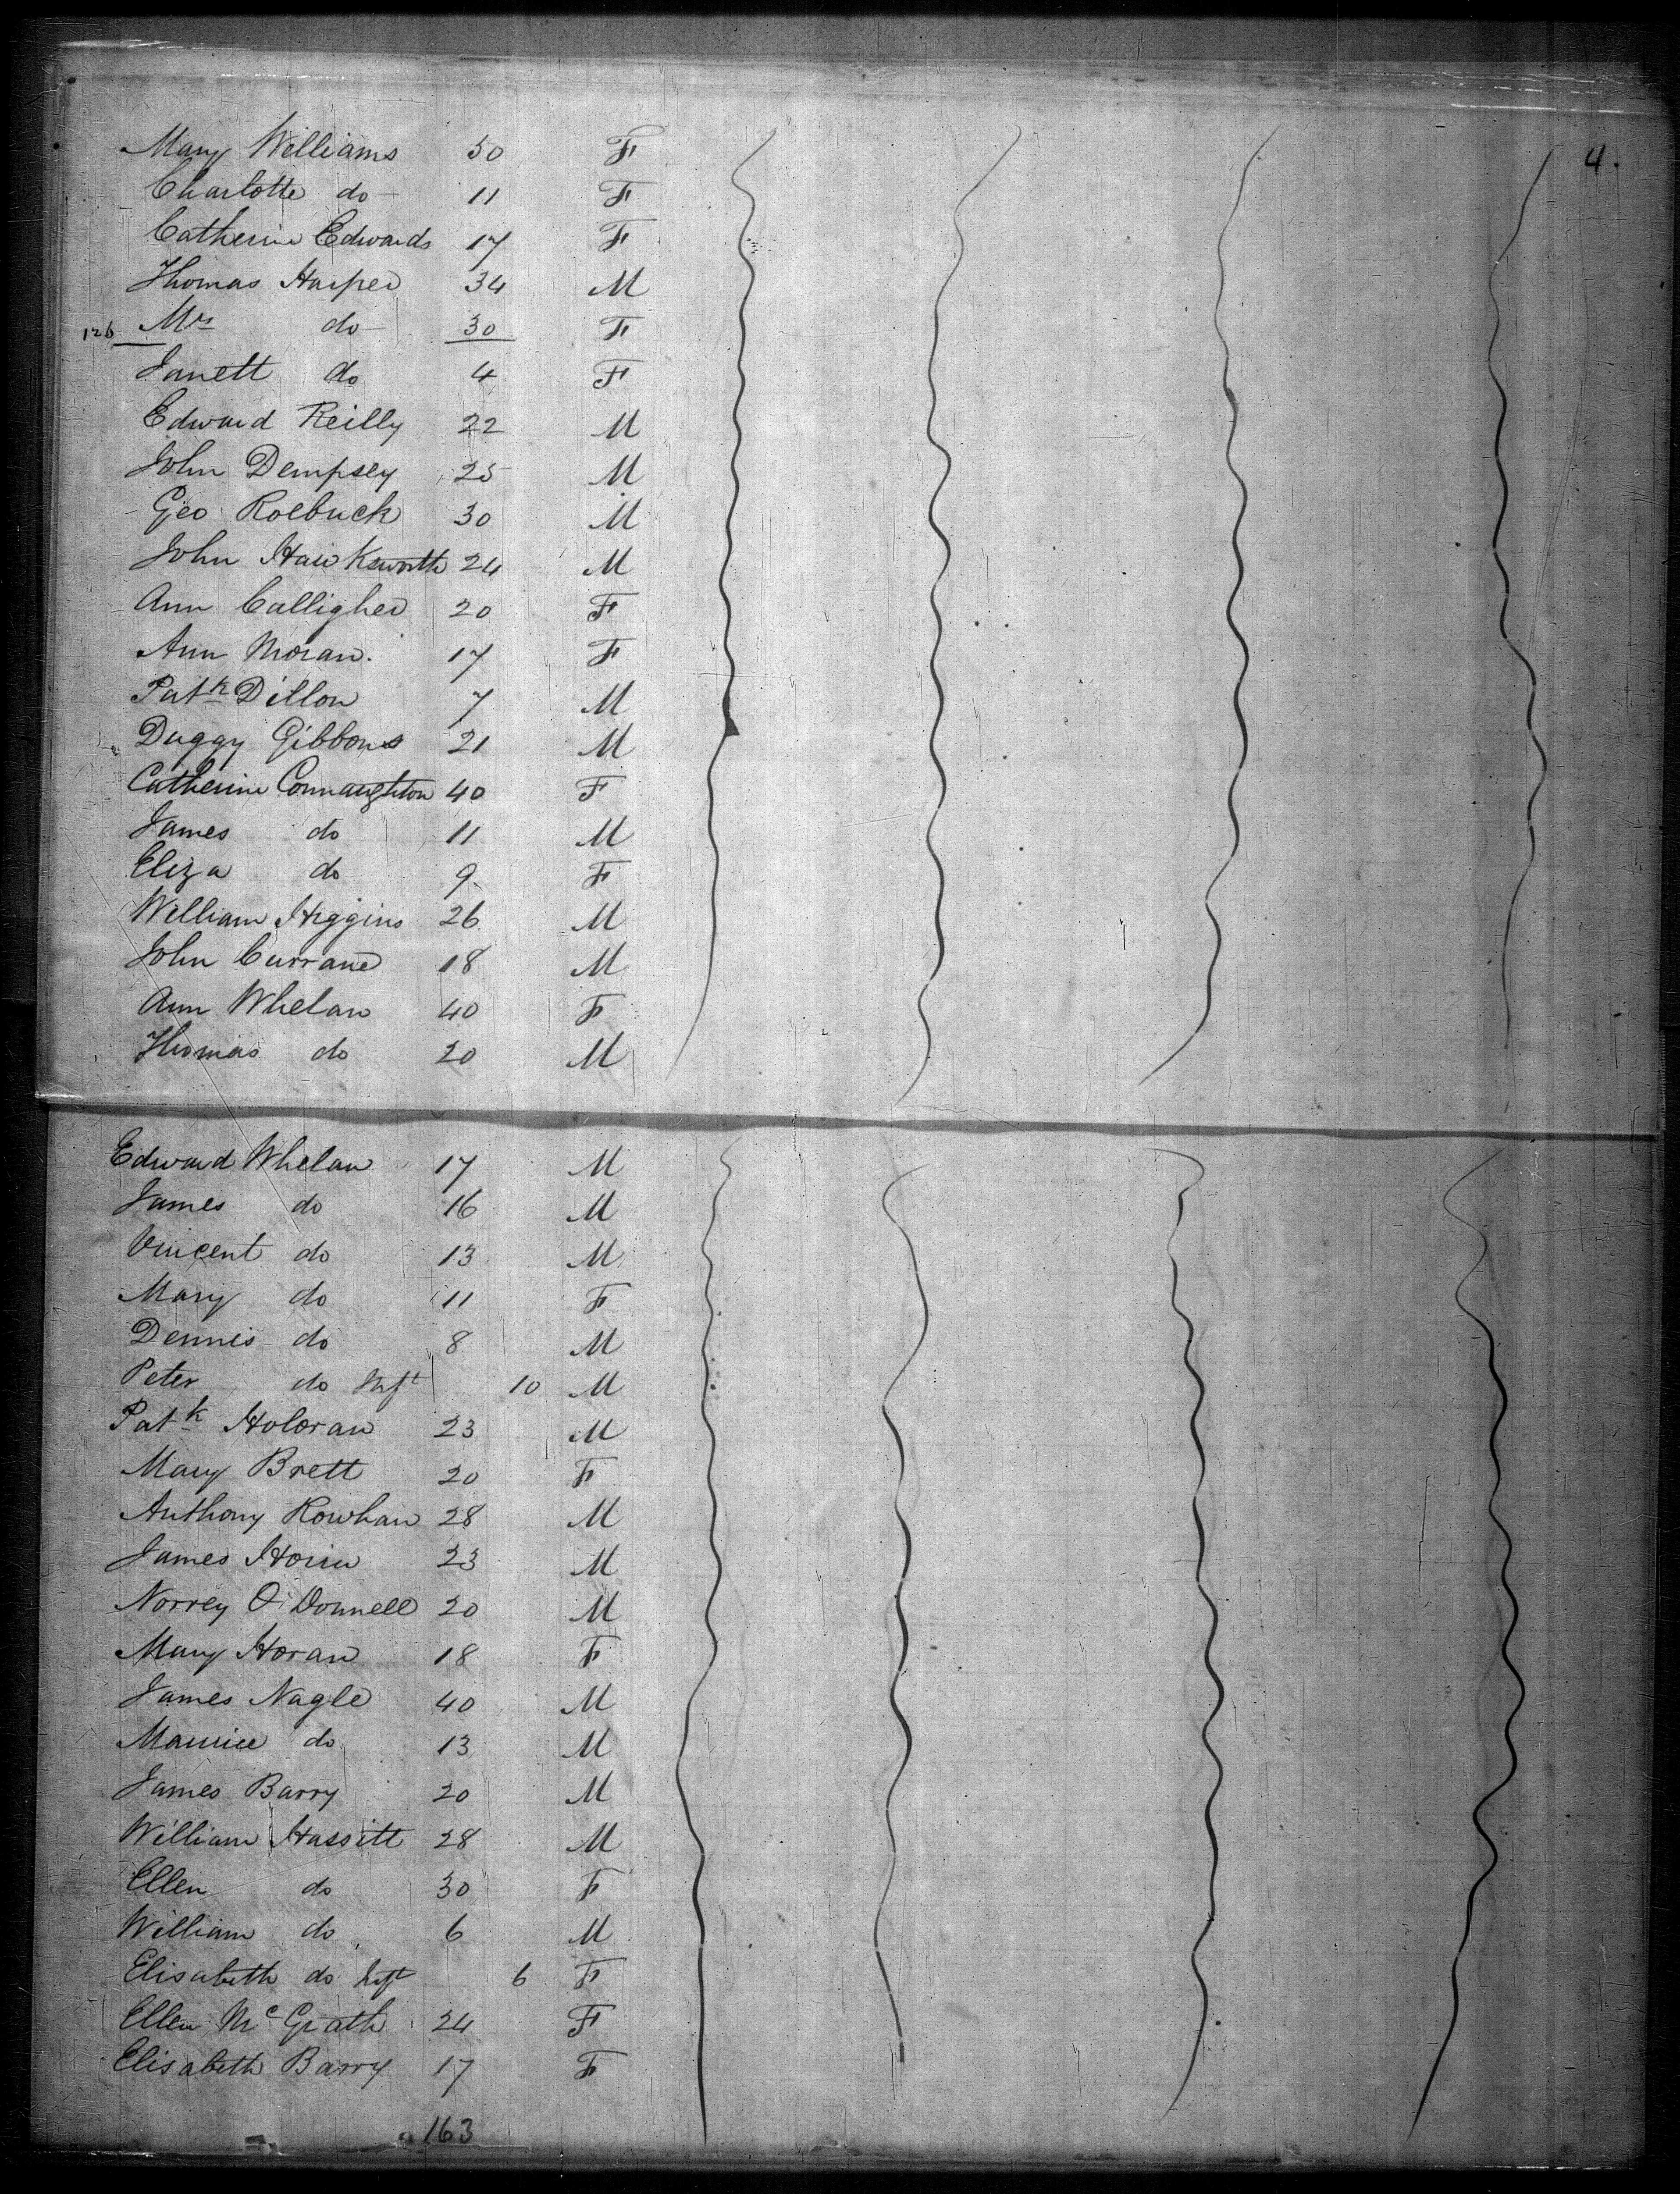 4.
Mary Williams 50 F
Charlotte do 11 F
Catherine Edwards 17 F
Thomas Harper 34 M
126 Mrs do 30 F
Janett do 4 F
Edward Reilly 22 M
John Dempsey 25 M
Geo Roebuck 30 M
John Hawksworth 24 M
Ann Calligher 20 F
Ann Moran. 17 F
Patk Dillon 7 M
Duggy Gibbons 21 M
Catherine Connaughton 40 F
James do 11 M
Eliza do 9 F
William Higgins 26 M
John Currane 18 M
Ann Whelan 40 F
Thomas do 20 M
Edward Whelan 17 M
James do 16 M
Vincent do 13 M
Mary do 11 F
Dennis do 8 M
Peter do Inft 10 M
Patk Holoran 23 M
Mary Brett 20 F
Anthony Rowhan 28 M
James 23 M
Norrey O'Donnell 20 M
Mary Horan 18 F
James Nagle 40 M
Maurice do 13 M
James Barry 20 M
William Hassitt 28 M
Ellen do 30 F
William do 6 M
Elisabeth do Inft 6 F
Ellen McGrath 24 F
Elisabeth Barry 17 F
163